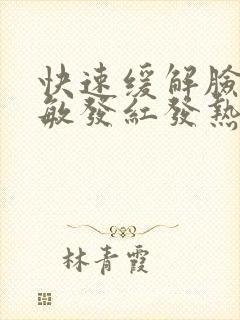 快速缓解臉
敏發紅發熱
林青霞